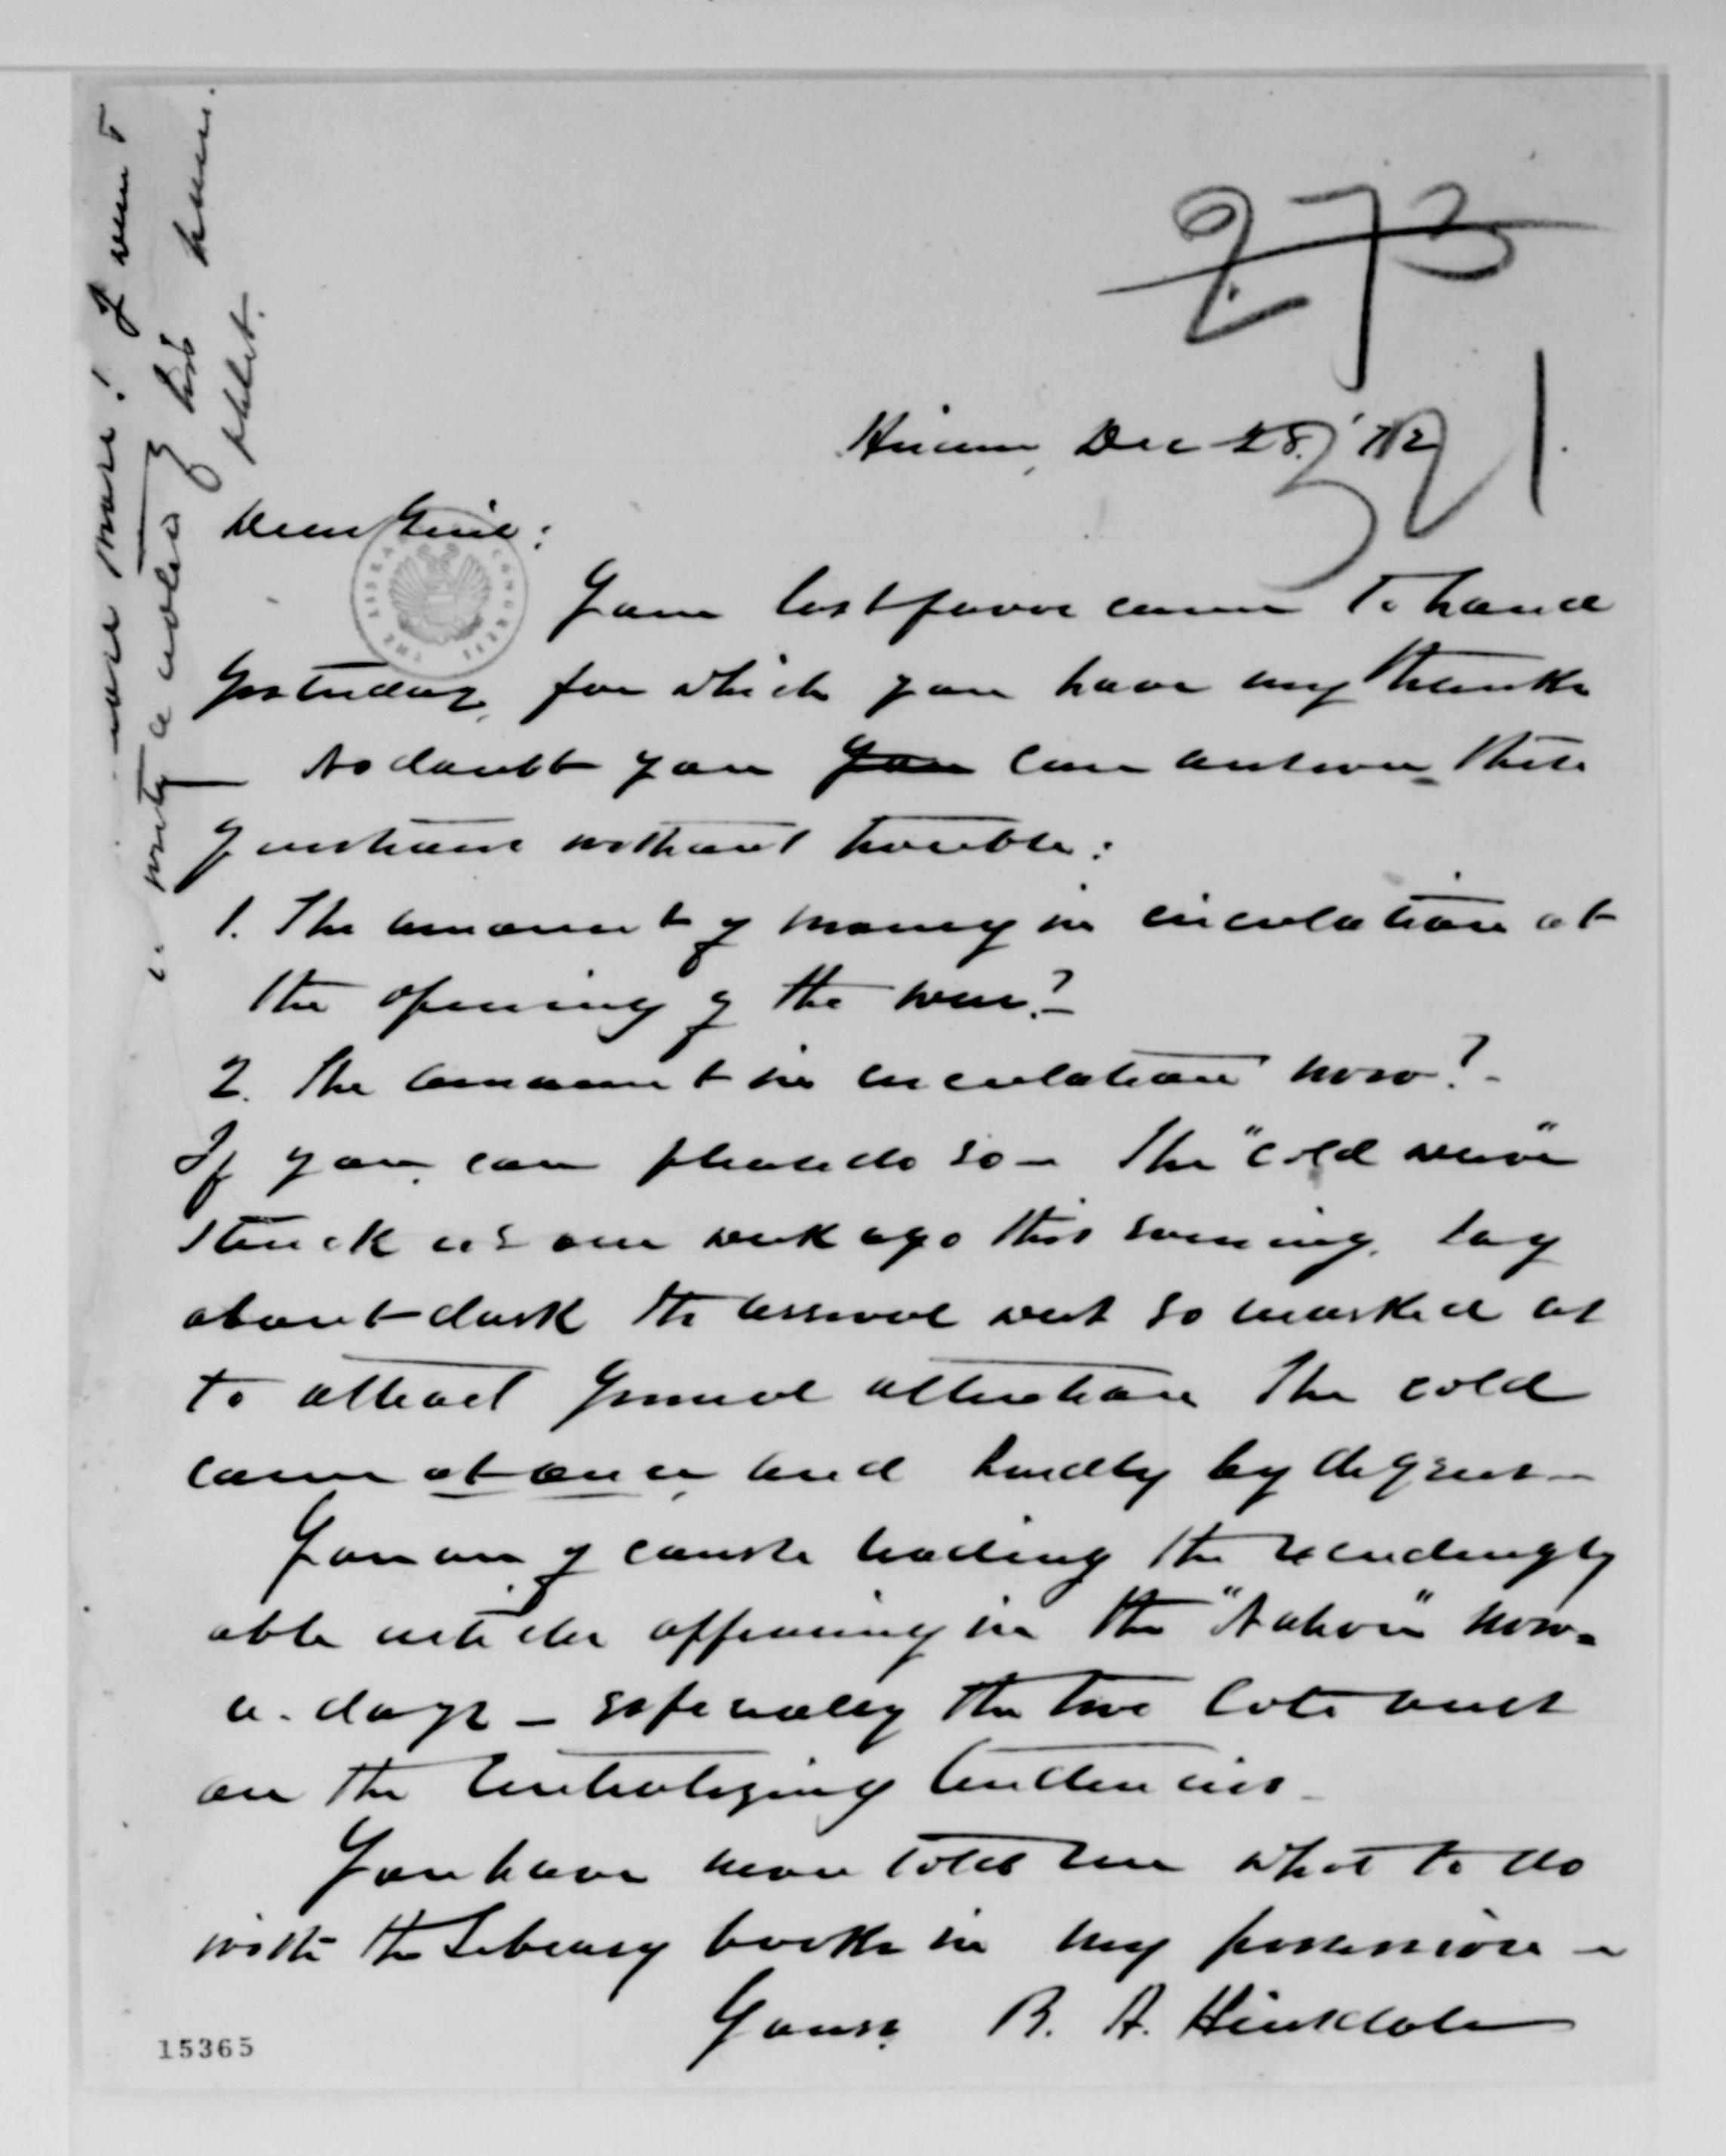 273
Hiram, Dec 28. '72
321
Dear Gen'l:
Your last favor came to hand
yesterday, for which you have my thanks
No doubt you you can answer these
questions without trouble:
1. The amount of money in circulation at
the opening of the war?–
2. The amount in circulation now?–
If you can please do so – The "cold wave"
struck us one week ago this evening.
about dark the arrival was so marked as
to attract general attention The cold
came at once, and hardly by degrees –
You are of course reading the exceedingly
able articles appearing in the "Nation" now-
a-days – especially the two late ones
on the Centralizing tendencies –
You have never told me what to do
with the Library books in my possession –
Yours, B. A. Hinsdale
one more! I want
a notice of his
phlet.
THE LIBRARY OF CONGRESS
15365